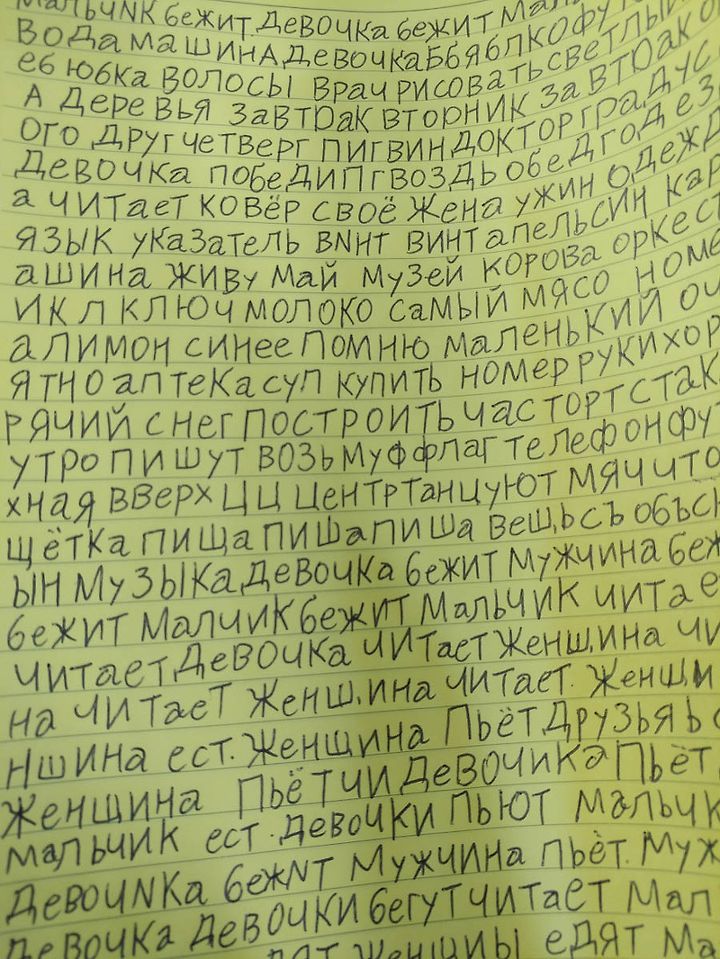 бежит девочка бежит
вода машина девочка Бб яблко
еб юбка волосы врач рисовать светлый
а деревья завтрак вторник завтрак
ого друг четверг пигвин доктор градус
девочка победи Пп гвоздь обед год
а читает ковёр своё жена ужин одежд
язык указатель винт винт апельсин кар
ашина живу май музей корова оркест
ик л ключ молоко самый мясо номе
а лимон синее помню маленький оч
ятно аптека суп купить номер руки хор
рячий снег построить час торт стак
утро пишут возьму фф флаг телефон фу
хная вверх Цц центр танцуют мяч что
щётка пища пиша пиша вешь съ объс
ын музыка девочка бежит мужчина беж
бежит малчик бежит мальчик читае
читает девочка читаст женщина чи
на читает женщина читает. женщи
ншина ест. женщина пьёт друзья ь
женщина пьёт чи девочика пьёт
мальчик ест. девочки пьют мальчк
девочика бежит мужчина пьёт. муж
девочка девочки бегут читает мал
едят ма